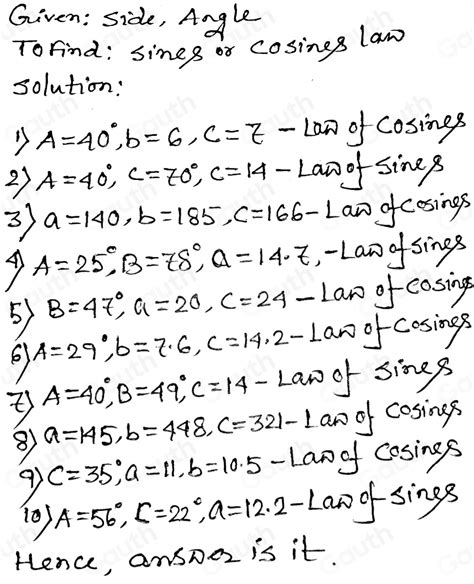 Given: Side, Angle
To Find: sines or cosines law
solution:
1) A=40°, b=6, c=7 - Law of cosines
2) A=40°, C=70°, c=14 - Law of sines
3) a=140, b=185, c=166 - Law of cosines
4) A=25°, B=78°, a=14.7, - Law of sines
5) B=47°, a=20, c=24 - Law of cosines
6) A=29°, b=7.6, c=14.2 - Law of cosines
7) A=40°, B=49°, c=14 - Law of sines
8) a=145, b=448, c=321 - Law of cosines
9) C=35°, a=11, b=10.5 - Law of cosines
10) A=56°, C=22°, a=12.2 - Law of sines
Hence, answer is it.